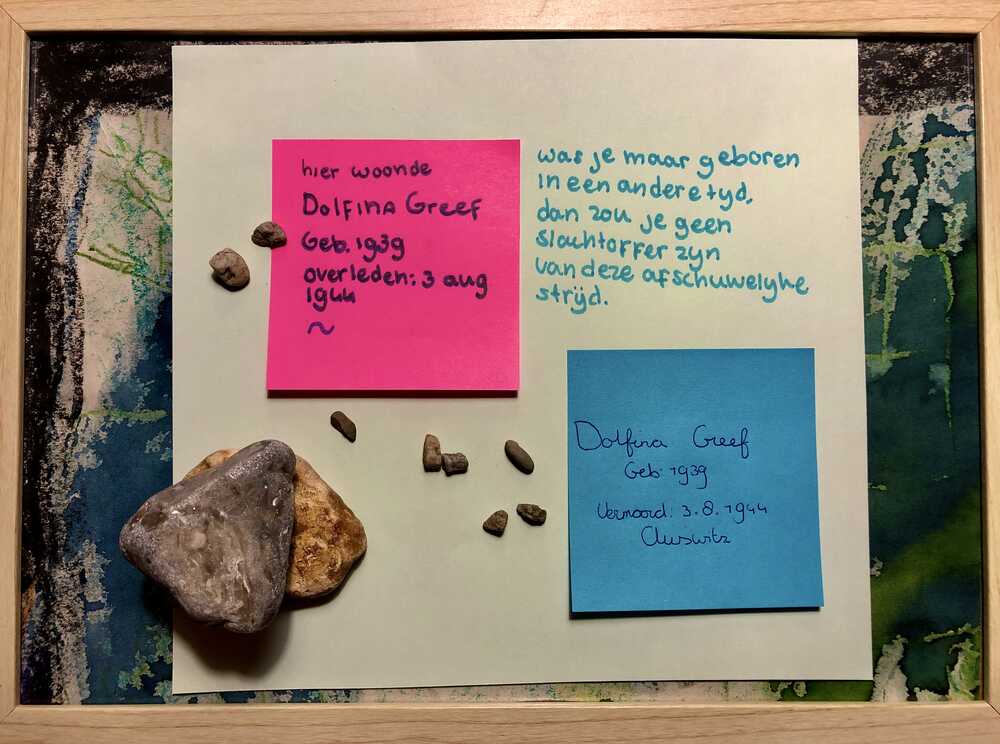 hier woonde
Dolfina Greef
Geb. 1939
overleden: 3 aug
1944
~
was je maar geboren
in een andere tyd,
dan zou je geen
slachtoffer zyn
van deze afschuwelyke
strijd.
Dolfina Greef
Geb. 1939
Vermoord: 3.8.1944
Auswitz